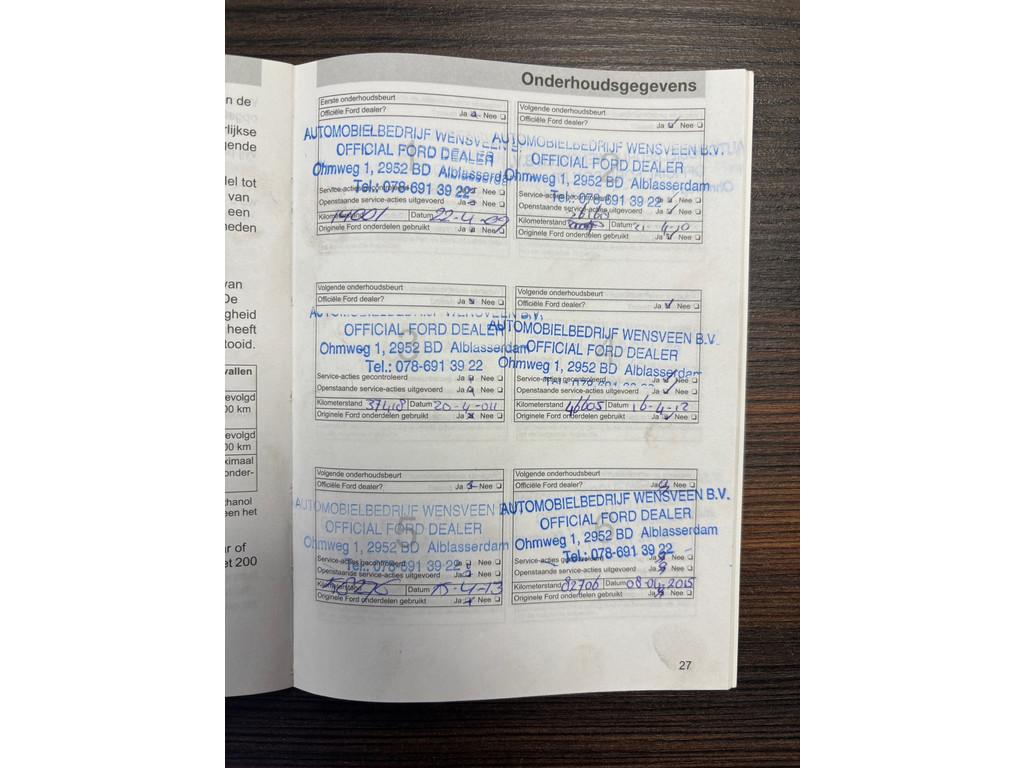 n de
rlijkse
gende
lel tot
van
een
neden
van
De
gheid
heeft
tooid.
vallen
evolgd
00 km
evolgd
00 km
ximaal
onder-
thanol
een het
ar of
et 200
Onderhoudsgegevens
Eerste onderhoudsbeurt
Officiële Ford dealer? Ja Nee
AUTOMOBIELBEDRIJF WENSVEEN B.V.
OFFICIAL FORD DEALER
Ohmweg 1, 2952 BD Alblasserdam
Tel.: 078-691 39 22
Service-acties gecontroleerd Ja Nee
Openstaande service-acties uitgevoerd Ja Nee
Kilometerstand 14001 Datum 22-4-09
Originele Ford onderdelen gebruikt Ja Nee
Volgende onderhoudsbeurt
Officiële Ford dealer? Ja Nee
AUTOMOBIELBEDRIJF WENSVEEN B.V.
2
OFFICIAL FORD DEALER
Ohmweg 1, 2952 BD Alblasserdam
Tel.: 078-691 39 22
Ja Nee
Openstaande service-acties uitgevoerd Ja Nee
Kilometerstand Datum 21-4-10
Originele Ford onderdelen gebruikt Ja Nee
Volgende onderhoudsbeurt
Officiële Ford dealer? Ja Nee
AUTOMOBIELBEDRIJF WENSVEEN B.V.
3
OFFICIAL FORD DEALER
Ohmweg 1, 2952 BD Alblasserdam
Tel.: 078-691 39 22
Service-acties gecontroleerd Ja Nee
Openstaande service-acties uitgevoerd Ja Nee
Kilometerstand 37418 Datum 20-4-011
Originele Ford onderdelen gebruikt Ja Nee
Volgende onderhoudsbeurt
Officiële Ford dealer? Ja Nee
AUTOMOBIELBEDRIJF WENSVEEN B.V.
OFFICIAL FORD DEALER
Ohmweg 1, 2952 BD Alblasserdam
Tel.: 078-691 39 22
Service-acties gecontroleerd Ja Nee
Openstaande service-acties uitgevoerd Ja Nee
Kilometerstand 46605 Datum 16-4-12
Originele Ford onderdelen gebruikt Ja Nee
Volgende onderhoudsbeurt
Officiële Ford dealer? Ja Nee
AUTOMOBIELBEDRIJF WENSVEEN
5
OFFICIAL FORD DEALER
Ohmweg 1, 2952 BD Alblasserdam
Tel.: 078-691 39 22
Service-acties gecontroleerd Ja Nee
Openstaande service-acties uitgevoerd Ja Nee
Kilometerstand 58276 Datum 15-4-13
Originele Ford onderdelen gebruikt Ja Nee
Volgende onderhoudsbeurt
Officiële Ford dealer? Ja Nee
AUTOMOBIELBEDRIJF WENSVEEN B.V.
6
OFFICIAL FORD DEALER
Ohmweg 1, 2952 BD Alblasserdam
Tel.: 078-691 39 22
Service-acties gecontroleerd Ja Nee
Openstaande service-acties uitgevoerd Ja Nee
Kilometerstand 82706 Datum 08-04-2015
Originele Ford onderdelen gebruikt Ja Nee
27